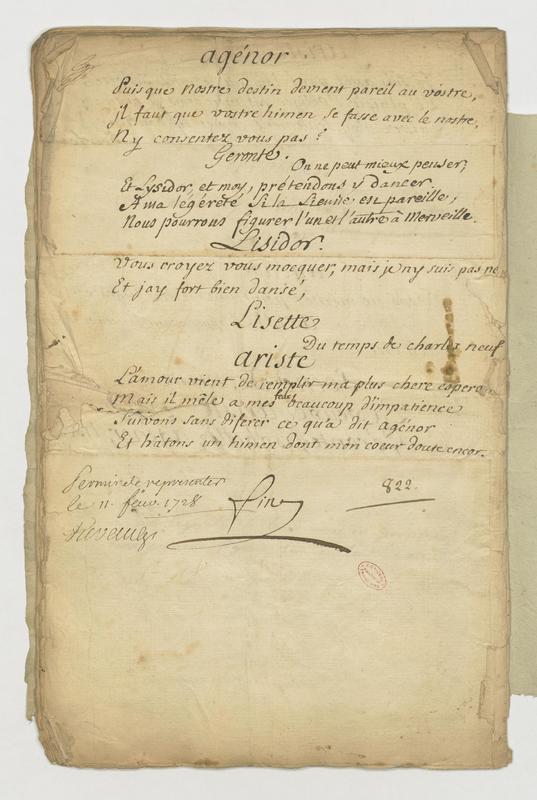 agénor
Puis que nostre destin devient pareil au vostre,
il faut que vostre himen se fasse avec le nostre.
N'y consentez vous pas ?
Geronte.
On ne peut mieux penser;
Et Lysidor, et moy, prétendons y dancer.
A ma légéreté si la sienne est pareille,
Nous pourrons figurer l'un et l'autre à merveille.
Lisidor.
Vous croyez vous mocquer, mais je ny suis pas ne
Et jay fort bien dansé,
Lisette
Du temps de charles neuf
ariste
L'amour vient de remplir ma plus chere espera
Mais il mêle a mes feux beaucoup d'impatience
Suivons sans diferer ce qu'a dit agénor
Et hâtons un himen dont mon coeur doute encor.
Permis de representer
le 11. feuv. 1728
fin
822.